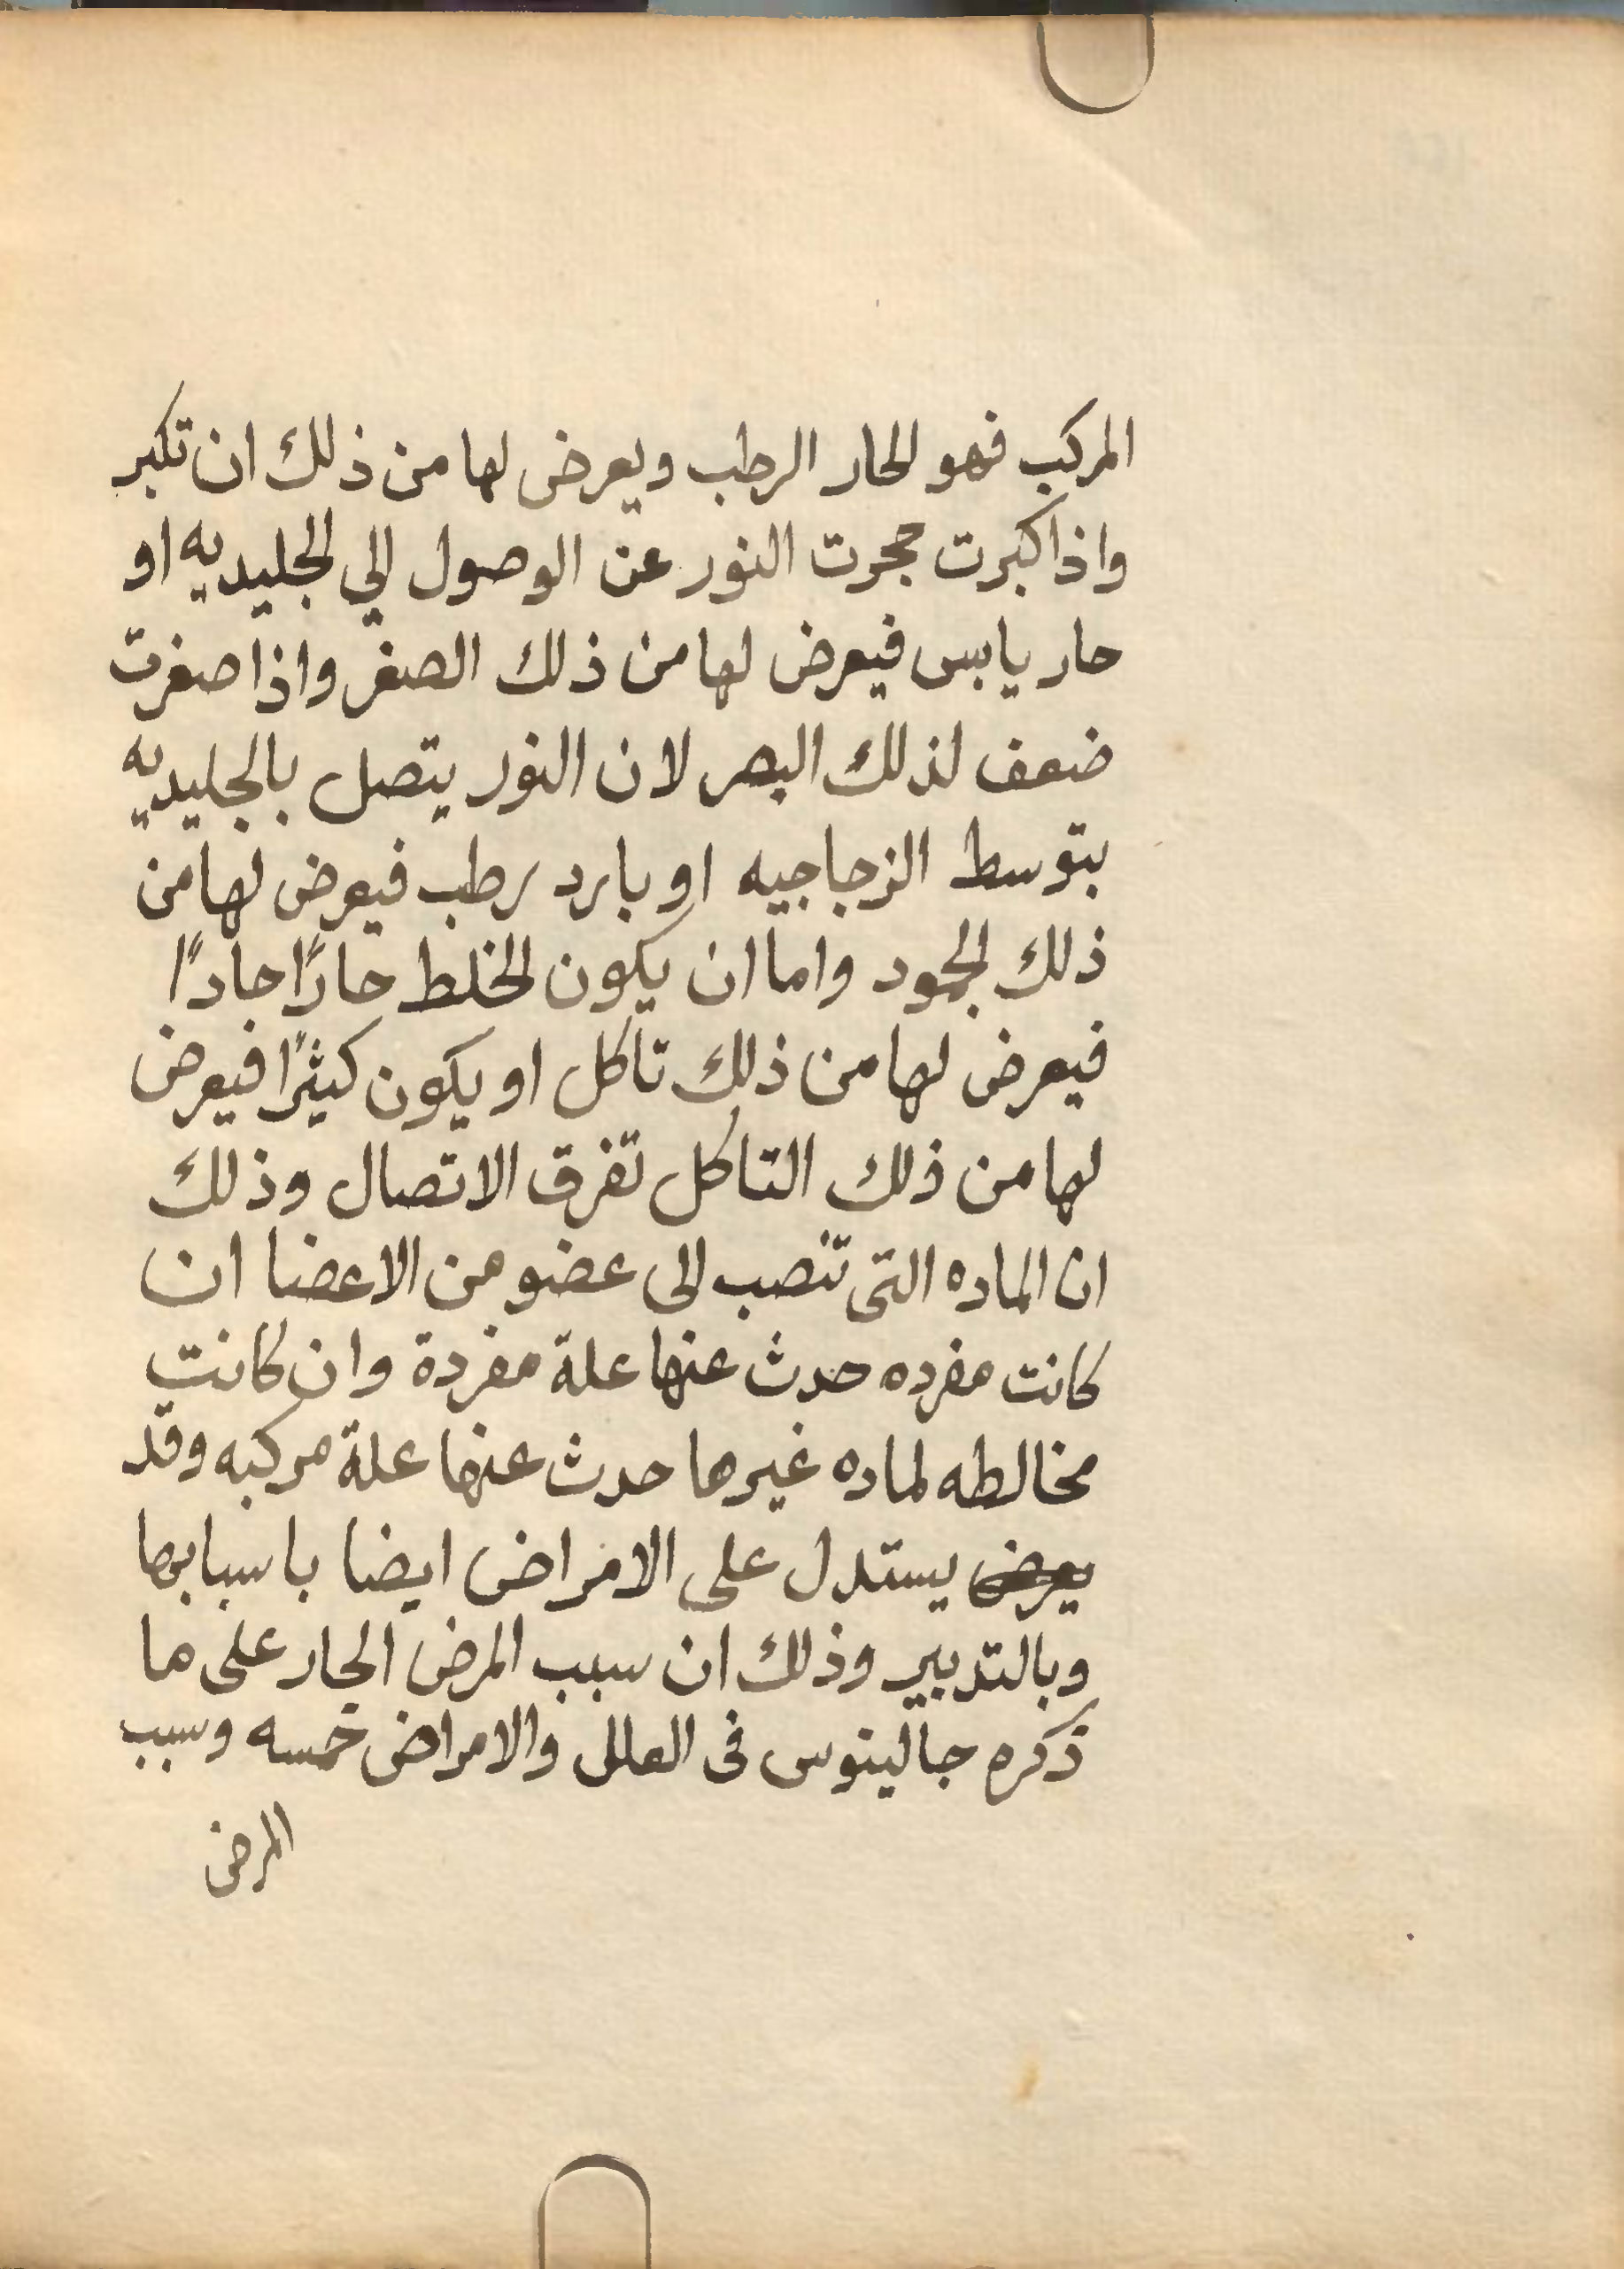 المركب فهو الحار الرطب ويعرض لها من ذلك ان تكبر
واذا كبرت حجرت النور عن الوصول الي الجليديه او
حار يابس فيعرض لها من ذلك الصغر واذا صغرت
ضعف لذلك البصر لان النور يتصل بالجليديه
بتوسط الزجاجيه او بارد رطب فيعرض لها من
ذلك الجمود واما ان يكون الخلط حارًا حادًا
فيعرض لها من ذلك تاكل او يكون كثيرًا فيعرض
لها من ذلك التاكل تفرق الاتصال وذلك
ان الماده التى تنصب الى عضو من الاعضا ان
كانت مفرده حدث عنها علة مفردة وان كانت
مخالطه لماده غيرها حدث عنها علة مركبه وقد
يعرض يستدل على الامراض ايضا باسبابها
وبالتدبير وذلك ان سبب المرض الحار على ما
ذكره جالينوس فى العلل والامراض خمسه وسبب
المرض